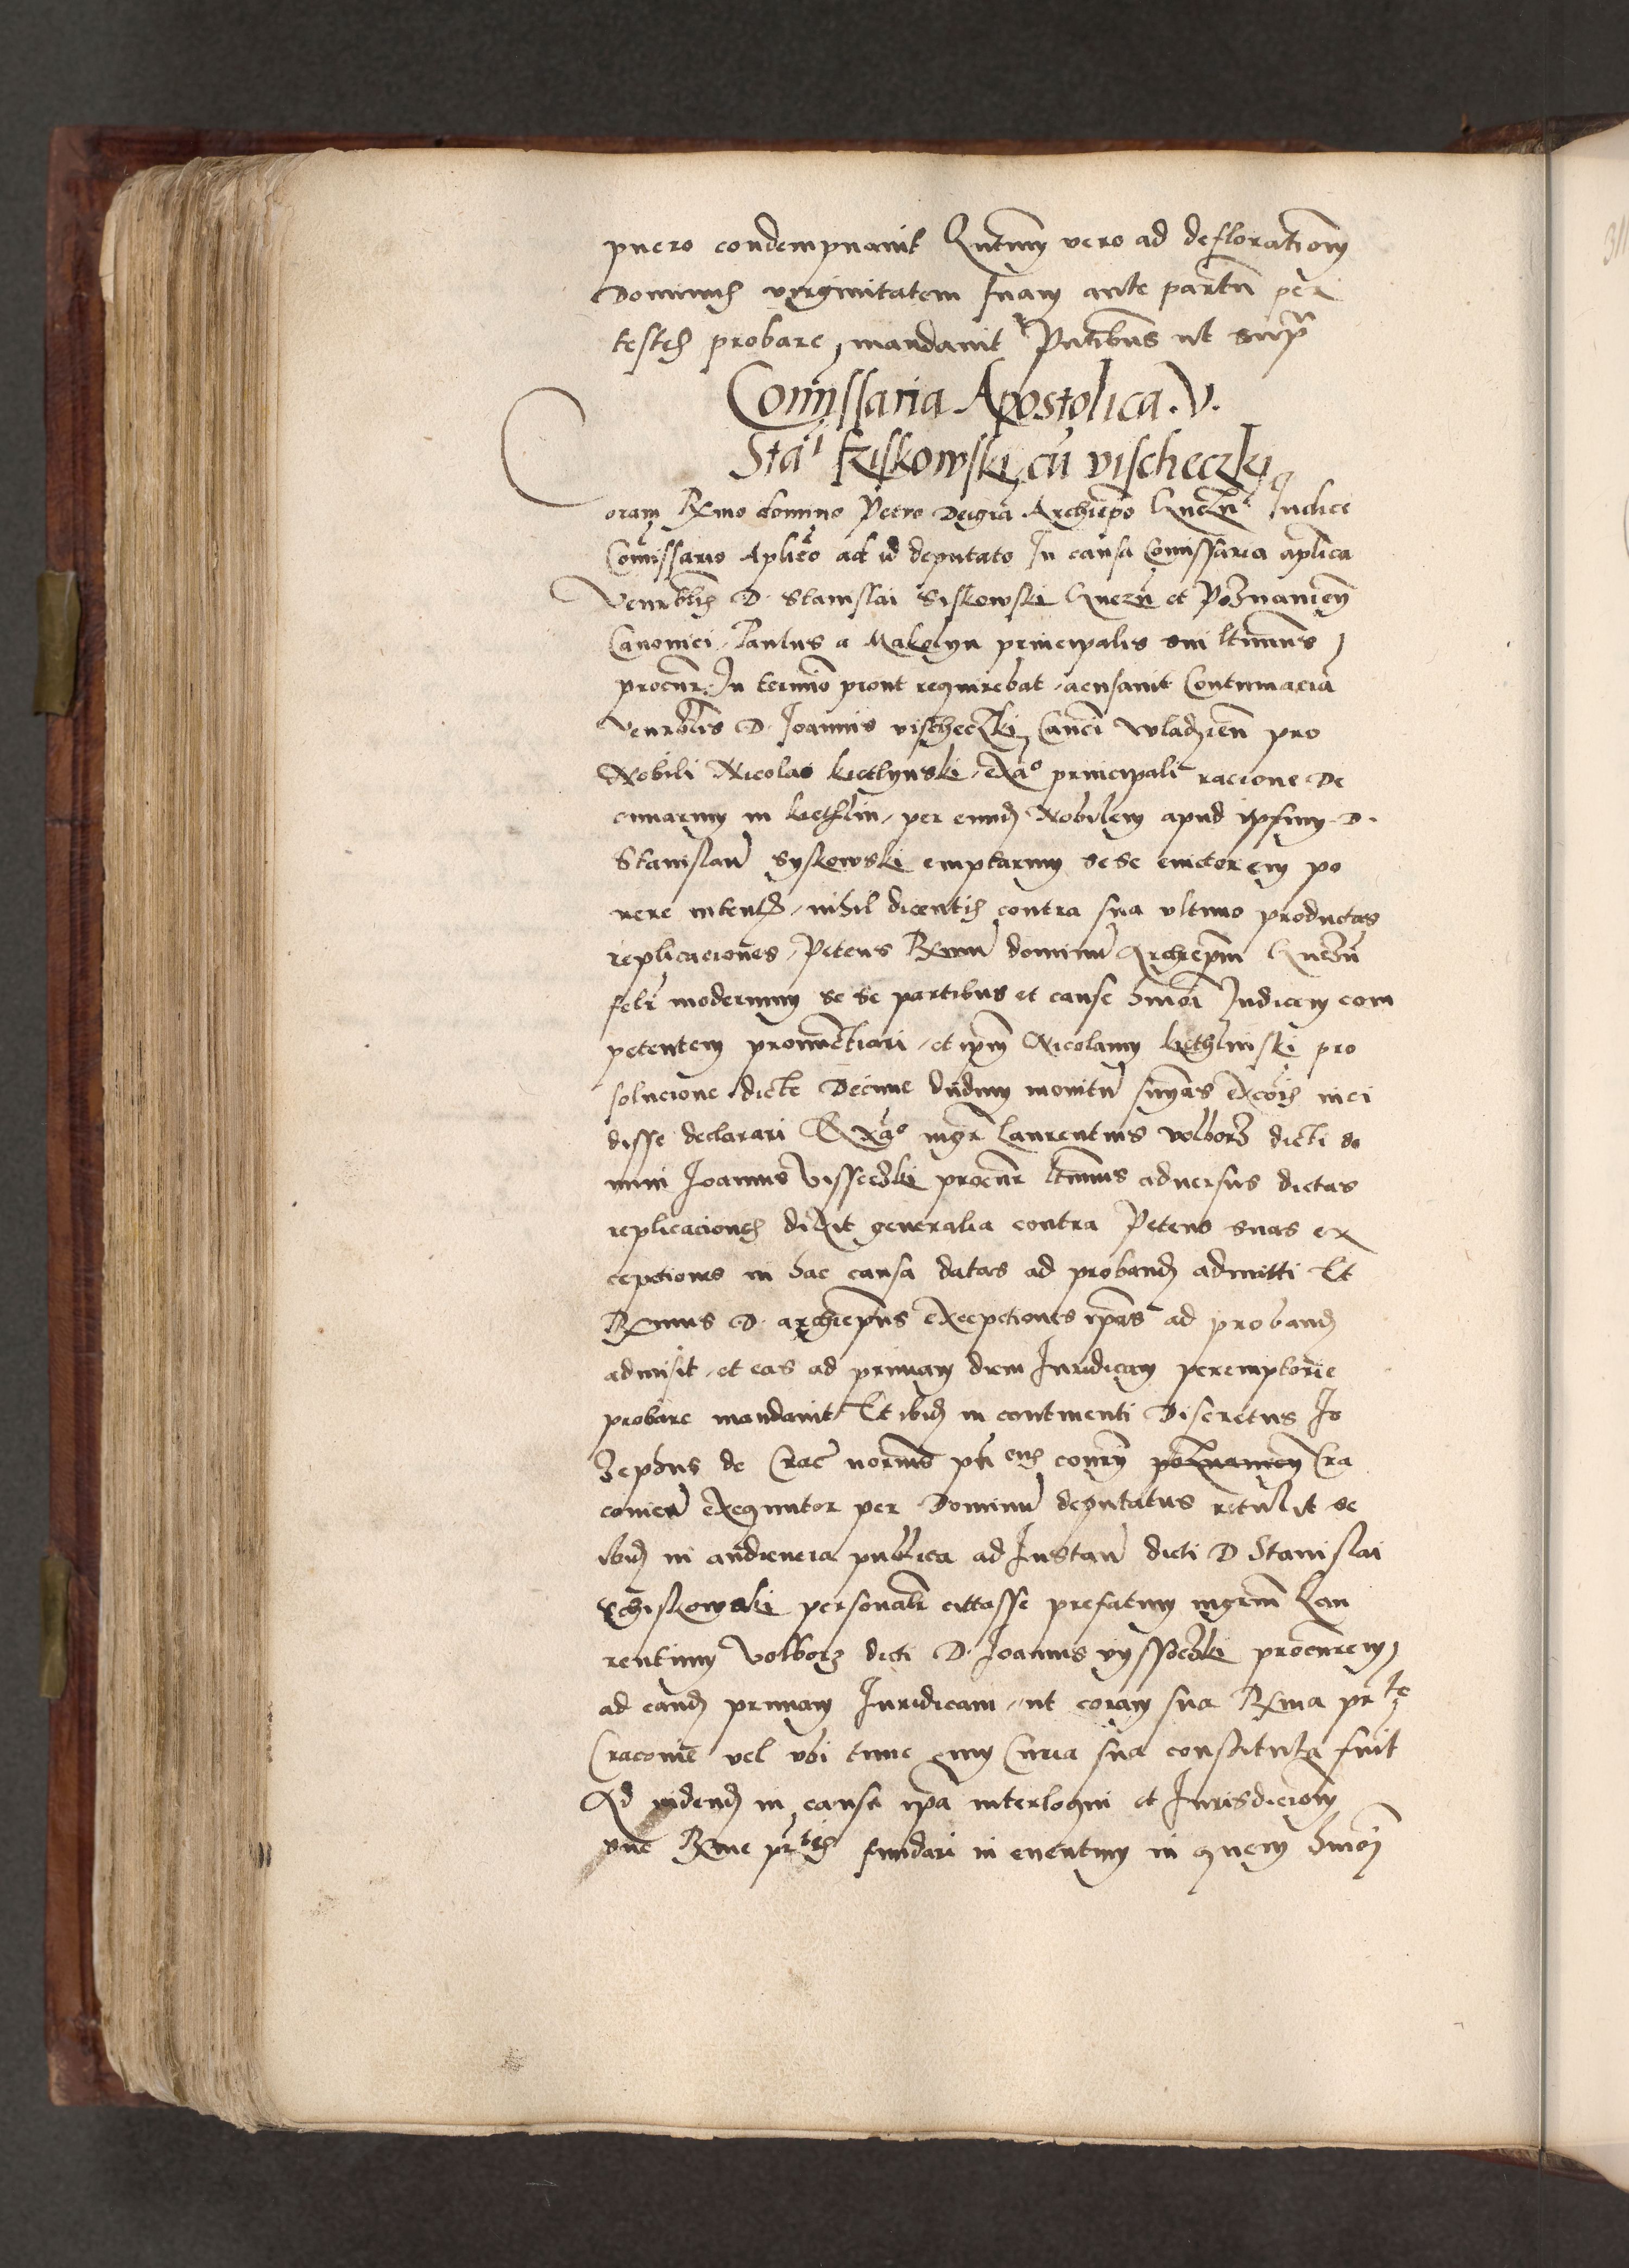 puero condempnauit Quantum vero ad deflorationem
Dominus virginitatem suam ante partum per
testes probare mandauit Pntibus ut supra
Comissaria Apostolica .V.
Stai Sziskowski cu vischeczki
Coram Rxmo domino Petro Dei gra Archiepo Gnezn Iudice
Comissario Aplico ad id deputato In causa Comissaria aplica
Venrblis D. Stanislai Siskowski Gnezn et Poznanien
Canonici Paulus a Makolyn principalis sui ltimus
procur In termino prout requirebat acusauit Contumacia
Venrblis D. Ioannis vischeczki Canci wladzien pro
Nobili Nicolao kietlynski exa° principali racione De
cimarum in kiethlin per eund Nobilem apud ipsum D.
Stanislau Syskowski emptarum sese euictorem po
nere intend nihil dicentis contra sua vltimo productas
replicaciones Petens Rxmu dominu Archiepm Gnezn
feli modernum se se partibus et cause hmoi Iudicem com
petentem pronunctiari et ipm Nicolaum kiethlinski pro
solucione dicte Decime dudum monitu snias excois inci
disse declarari Ex a° mgr Laurentius volborz dicti do
mini Ioannis Visseczki procur ltimus aduersus dictas
replicaciones dixit generalia contra Petens suas ex
ceptiones in hac causa datas ad proband admitti Et
Rxmus D. archiepus exceptiones ipas ad proband
admisit et eas ad primam diem Iuridicam peremptorie
probare mandauit Et ibid in continenti Discretus Io
zephus de Crac norius pntens coniun poznanien Cra
couien exequutor per Dominu deputatus retulit se
ibid in audiencia publica ad Instan dicti D Stanislai
Schiskowski personalr cittasse prefatum mgrm Lau
rentium Volborz dicti D. Ioannis vyssoczki procurem
ad eand primam Iuridicam ut coram sua Rxma prte
Cracouie vel vbi tunc cum Curia sua constituta fuit
Ad vidend in causa ipa interloqui et Iurisdicionem
sue Rxme prtis fundari in euentum in quem hmoi